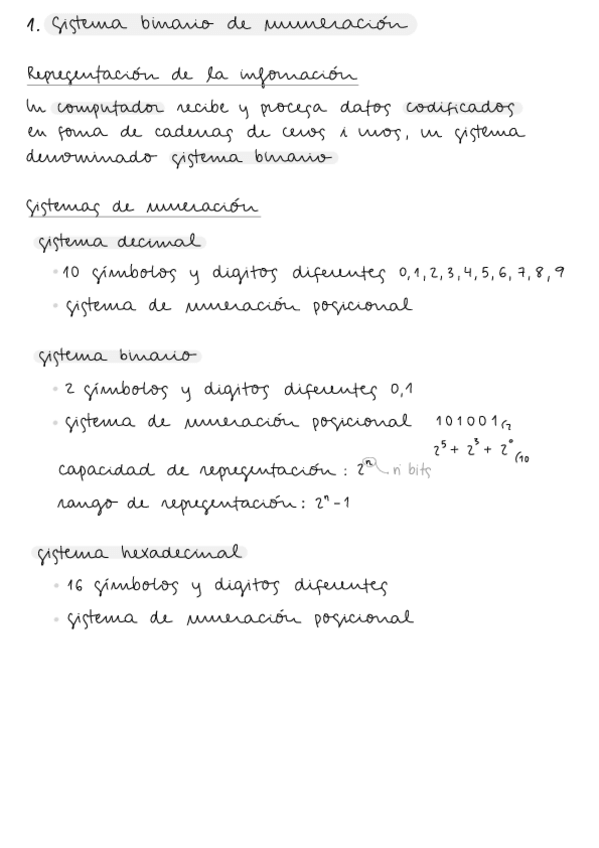 1. Sistema binario de numeración
Representación de la información
Un computador recibe y procesa datos codificados
en forma de cadenas de ceros i unos, un sistema
denominado sistema binario
Sistemas de numeración
sistema decimal
• 10 símbolos y digitos diferentes 0,1,2,3,4,5,6,7,8,9
• sistema de numeración posicional
sistema binario
• 2 símbolos y digitos diferentes 0,1
• sistema de numeración posicional 101001(2
2⁵ + 2³ + 2⁰(10
capacidad de representación : 2ⁿ n bits
rango de representación : 2ⁿ-1
sistema hexadecimal
• 16 símbolos y digitos diferentes
• sistema de numeración posicional